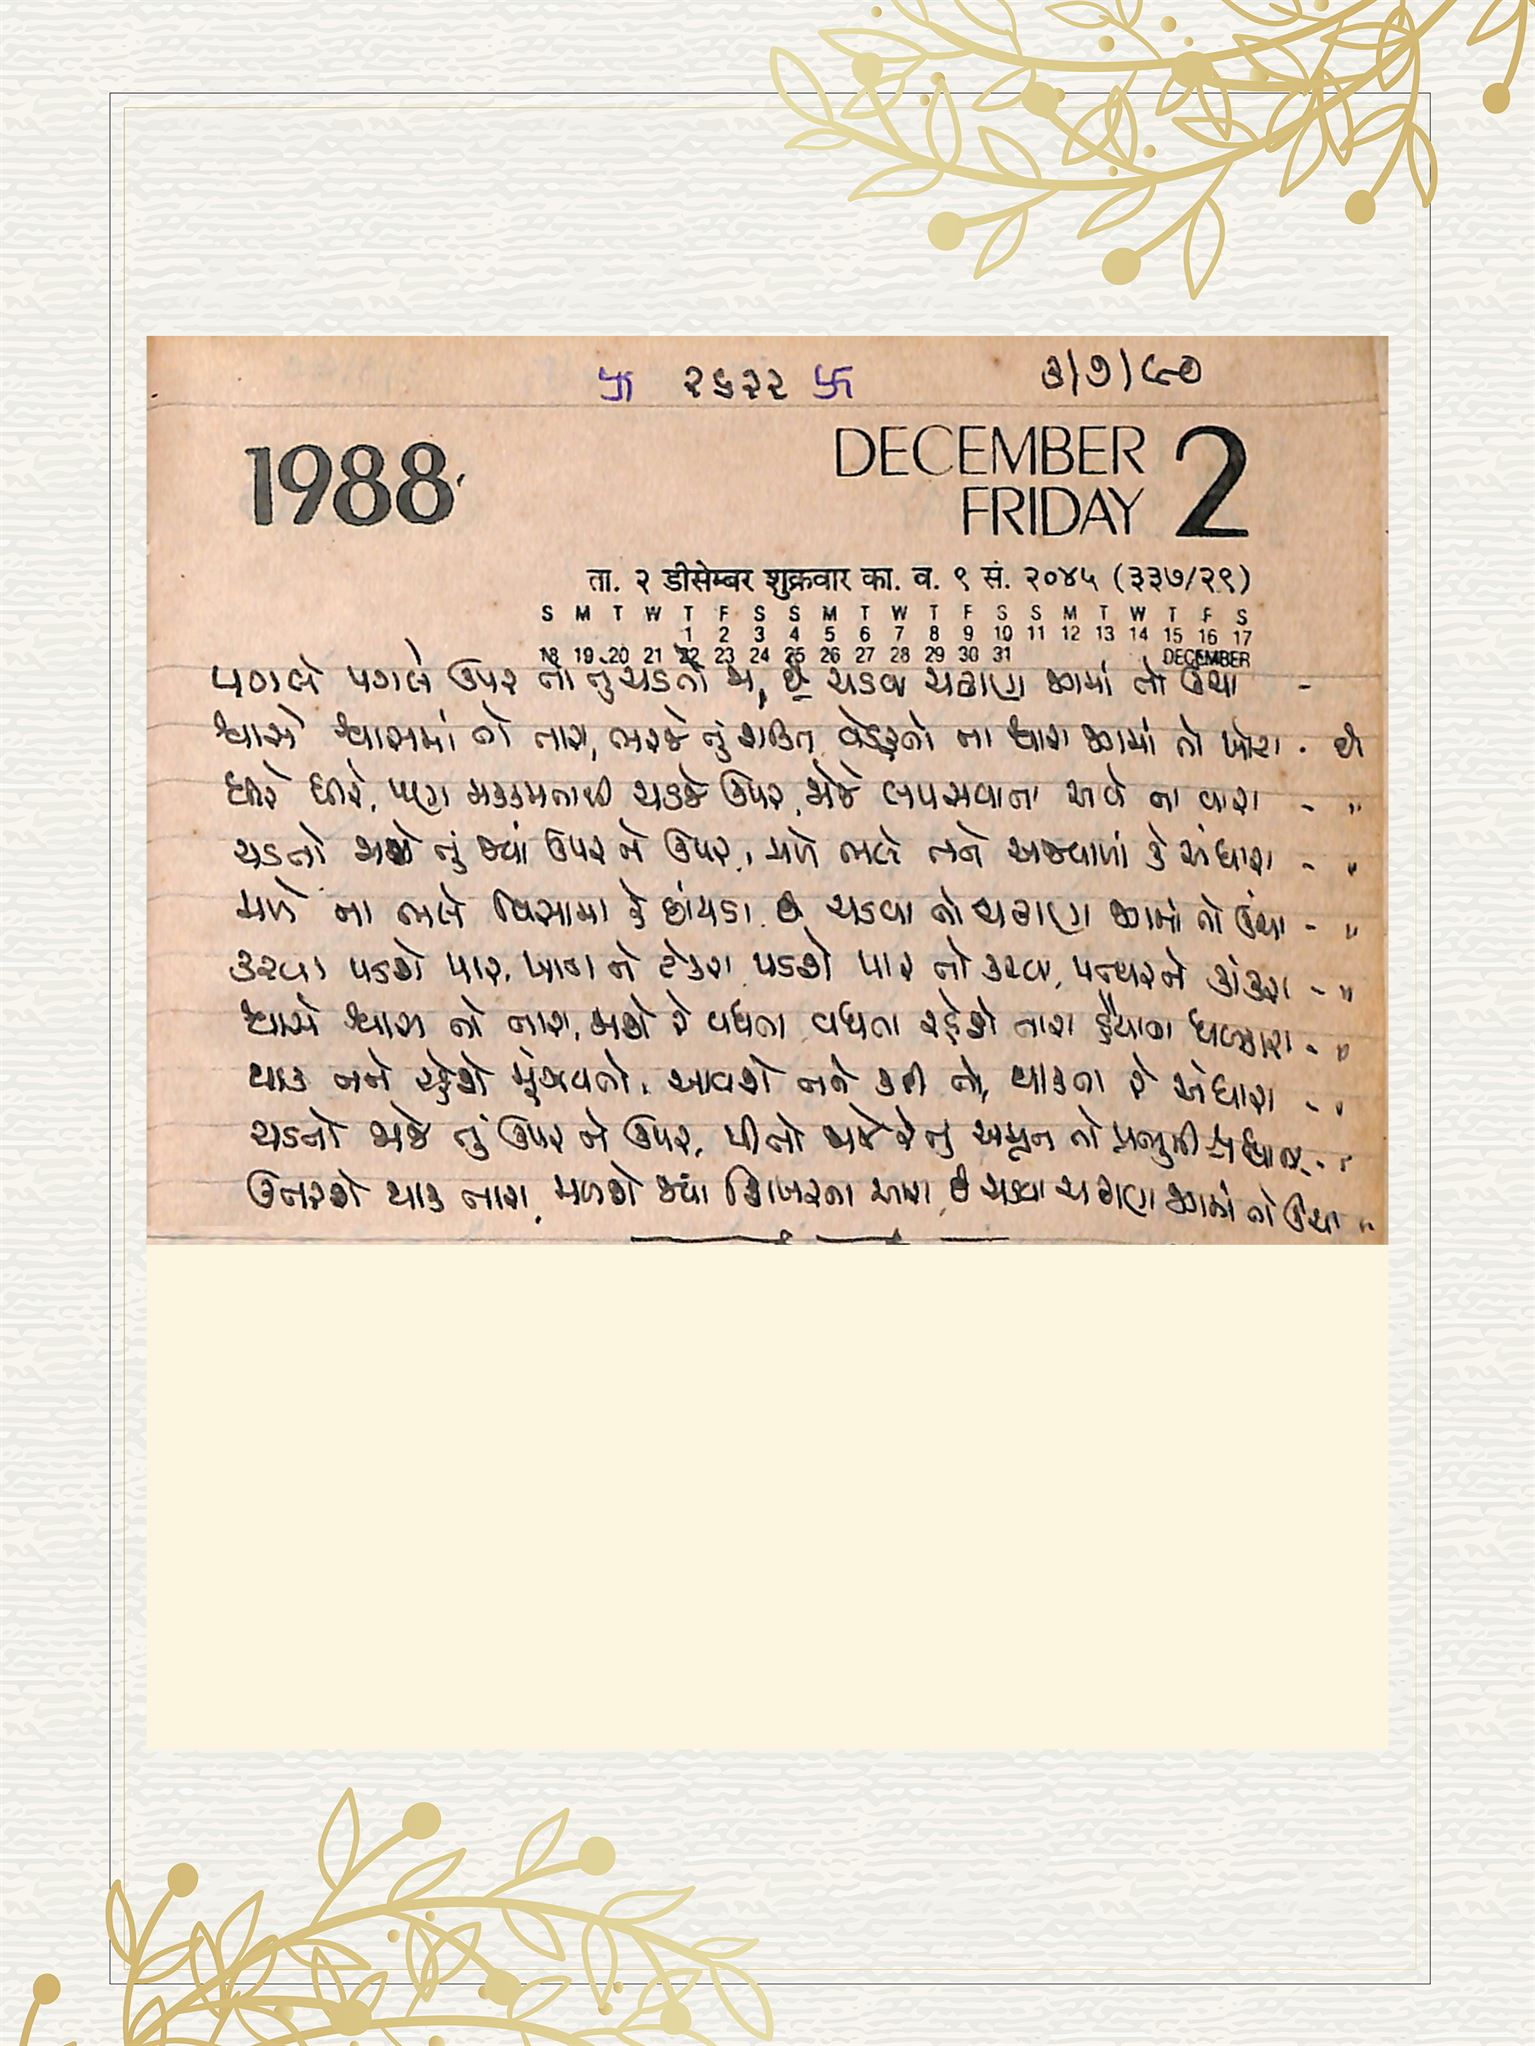 卐 ૨૬૨૨ 卐 ૩/૭/૯૦
1988
DECEMBER 2
FRIDAY
ता. २ डीसेम्बर शुक्रवार का. व. ९ सं. २०४५ (३३७/२९)
S M T W T F S S M T W T F S S M T W T F S
1 2 3 4 5 6 7 8 9 10 11 12 13 14 15 16 17
18 19 20 21 22 23 24 25 26 27 28 29 30 31 DECEMBER
પગલે પગલે ઉપર તો તું ચડતો જા, છે ચડવા ચઢાણ જ્યાં તો ઊંચા -
શ્વાસે શ્વાસમાં તો તારા, ભરજે તું શક્તિ, વેડફતો ના શ્વાસ તો - છે
ધીરે ધીરે, પણ મક્કમતાથી ચડજે ઉપર, જોજે લપસવાના આવે ના વારા - "
ચડતો જાજે તું જ્યાં ઉપર ને ઉપર, મળે ભલે તને અજવાળાં કે અંધારા - "
મળે ના ભલે વિસામા કે છાંયડા, છે ચડવા તો ચઢાણ તો ઊંચા - "
કરવા પડશે પાર, ખાડા ને ટેકરા, પડશે પાર તો કરવા, પથ્થર ને કાંકરા - "
શ્વાસે શ્વાસ તો તારા, જાશે રે વધતા, વધતા રહેશે તારા હૈયાના ધબકારા - "
થાક તને રહેશે મૂંઝવતો, આવશે તને કદી તો, થાકના રે અંધારા - "
ચડતો જાજે તું ઉપર ને ઉપર, પીતો જાજે રે તું અમૃત તો પ્રભુની - "
ઉતરશે થાક તારા, મળશે જ્યાં શિખરના આરા, છે ચડવા ચઢાણ તો ઊંચા "